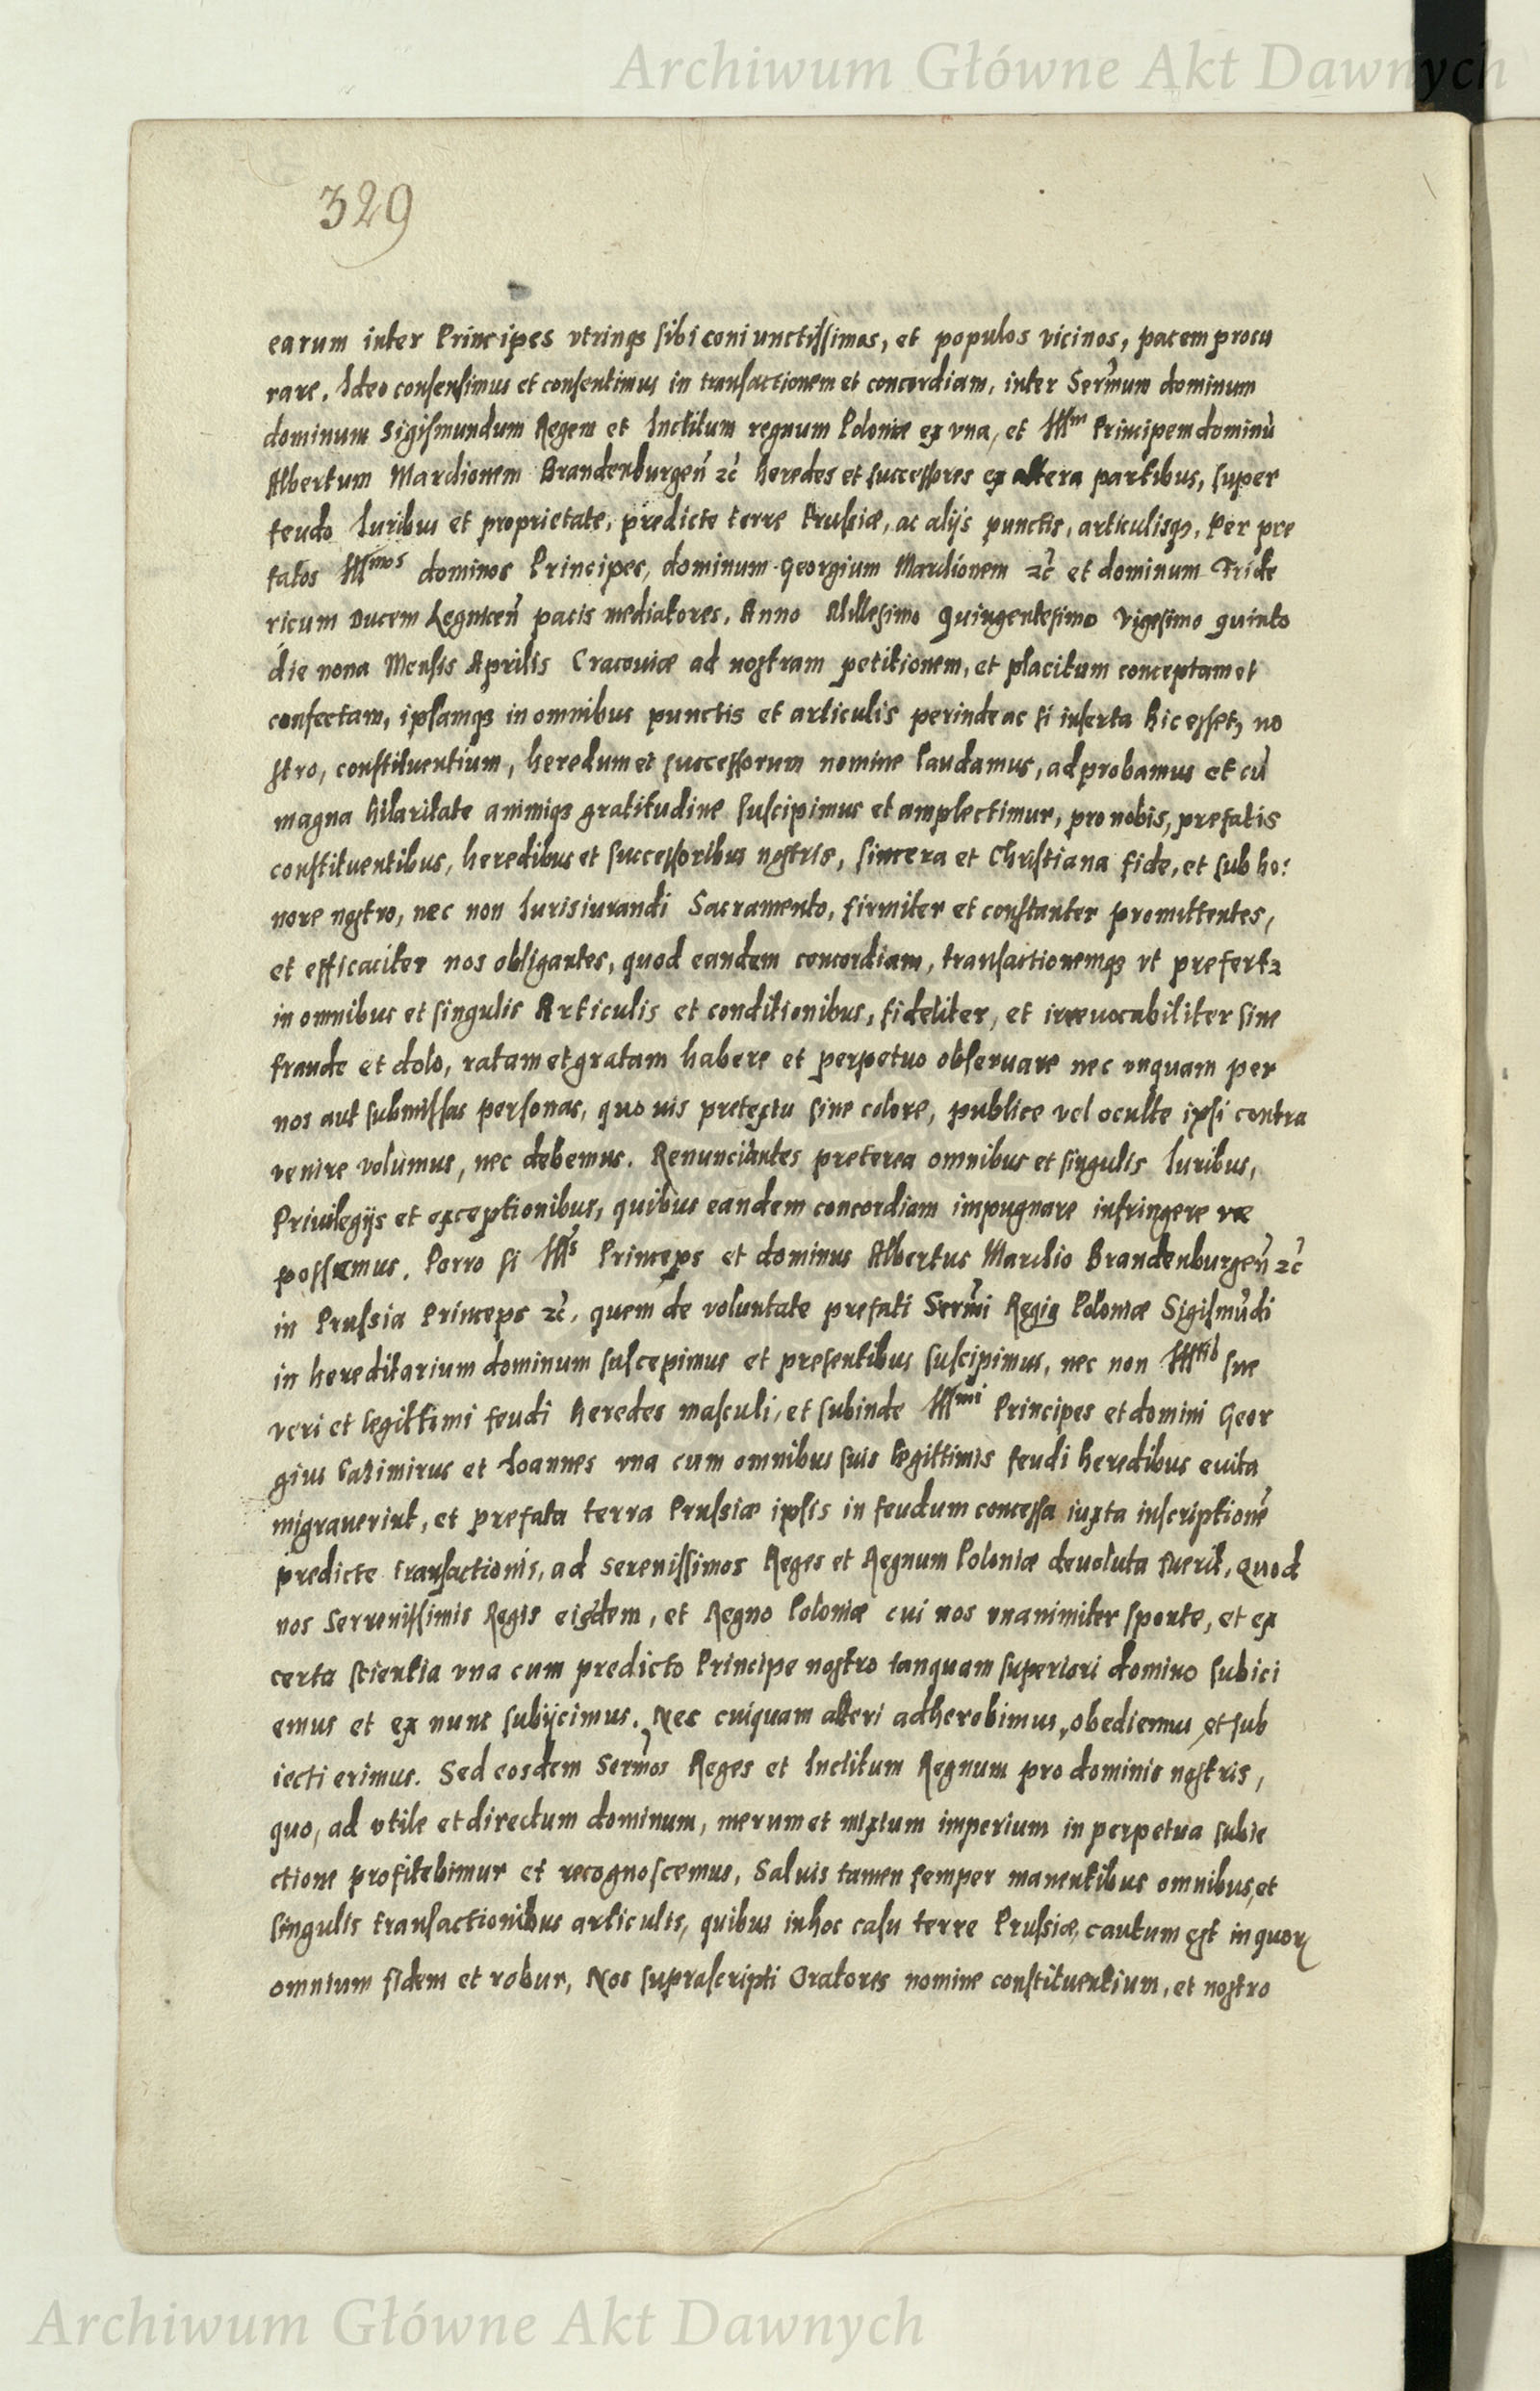 Archiwum Główne Akt Dawnych
329
earum inter Principes vtrinqȝ sibi coniunctissimos, et populos vicinos, pacem procu
rare. Ideo consensimus et consentimus in transactionem et concordiam, inter Sermum dominum
dominum Sigismundum Regem et Inclitum regnum Poloniæ ex vna, et Illm Principem dominū
Albertum Marchionem Brandenburgeñ ꝛc̃ heredes et successores ex altera partibus, super
feudo Iuribus et proprietate, predicte terre Prussiæ, ac alijs punctis, articulisqȝ, Per pre
fatos Illmos dominos Principes, dominum Georgium Marchionem ꝛc̃ et dominum Fride
ricum Ducem Legniceñ pacis mediatores, Anno Millesimo Quingentesimo Vigesimo quinto
die nona Mensis Aprilis Cracouiæ ad nostram petitionem, et placitum conceptam et
confectam, ipsamqȝ in omnibus punctis et articulis perinde ac si inserta hic essetꝫ no
stro, constituentium, heredum et successorum nomine laudamus, adprobamus et cū
magna hilaritate animiqȝ gratitudine suscipimus et amplectimur, pro nobis, prefatis
constituentibus, heredibus et successoribus nostris, sincera et Christiana fide, et sub ho:
nore nostro, nec non Iurisiurandi Sacramento, firmiter et constanter promittentes,
et efficaciter nos obligantes, quod eandem concordiam, transactionemqȝ vt prefertꝛ
in omnibus et singulis Articulis et conditionibus, fideliter, et irreuocabiliter sine
fraude et dolo, ratam et gratam habere et perpetuo obseruare nec vnquam per
nos aut submissas personas, quo uis pretextu siue colore, publice vel oculte ipsi contra
venire volumus, nec debemus. Renunciantes preterea omnibus et singulis Iuribus,
Priuilegijs et exceptionibus, quibus eandem concordiam impugnare infringere ve
possemus. Porro si Ills Princeps et dominus Albertus Marchio Brandenburgeñ ꝛc̃
in Prussia Princeps ꝛc̃, quem de voluntate prefati Sermi Regis Poloniæ Sigismūdi
in hereditarium dominum suscepimus et presentibus suscipimus, nec non Illtis sue
veri et legittimi feudi heredes masculi, et subinde Illmi Principes et domini Geor
gius Casimirus et Ioannes vna cum omnibus suis legittimis feudi heredibus e uita
migrauerint, et prefata terra Prussiæ ipsis in feudum concessa iuxta inscriptionē
predicte transactionis, ad Serenissimos Reges et Regnum Poloniæ deuoluta fuerit, Quod
nos Serrenissimis Regis eisdem, et Regno Poloniæ cui nos vnanimiter sponte, et ex
certa scientia vna cum predicto Principe nostro tanquam superiori domino subici
emus et ex nunc subijcimus. Nec cuiquam alteri adherebimus, obediemus, et sub
iecti erimus. Sed eosdem Sermos Reges et Inclitum Regnum pro dominis nostris,
quo, ad vtile et directum dominum, merum et mixtum imperium in perpetua subie
ctione profitebimur et recognoscemus, Saluis tamen semper manentibus omnibus, et
singulis transactionibus articulis, quibus in hoc casu terre Prussiæ, cautum est in quorꝝ
omnium fidem et robur, Nos suprascripti Oratores nomine constituentium, et nostro
Archiwum Główne Akt Dawnych